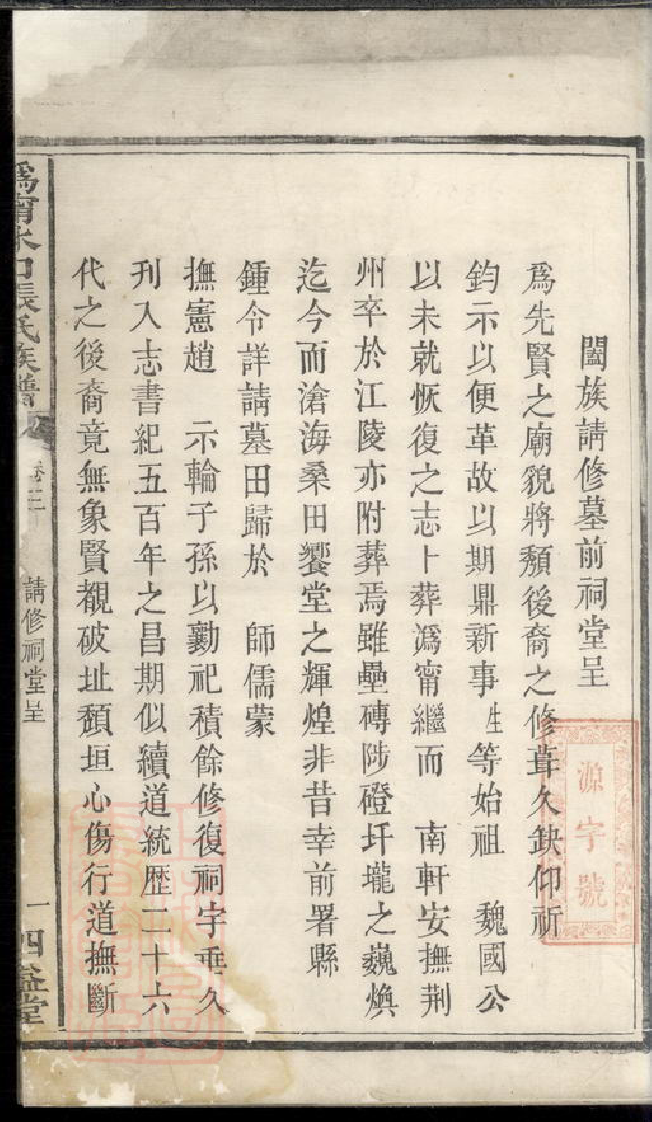 闔族請修墓前祠堂呈
爲先賢之廟貌將頽後裔之修葺久缺仰祈
鈞示以便革故以期鼎新事生等始祖 魏國公
以未就恢復之志卜葬溈甯繼而 南軒安撫荆
州卒於江陵亦附葬焉雖壘磚陟磴圩壠之巍煥
迄今而滄海桑田饗堂之輝煌非昔幸前署縣
鍾令詳請墓田歸於 師儒蒙
撫憲趙 示輪子孫以勷祀積餘修復祠宇垂久
刊入志書紀五百年之昌期似續道統歷二十六
代之後裔竟無象賢覩破址頽垣心傷行道撫斷
爲甯水口張氏族譜
卷三
請修祠堂呈
一
四益堂
源字號